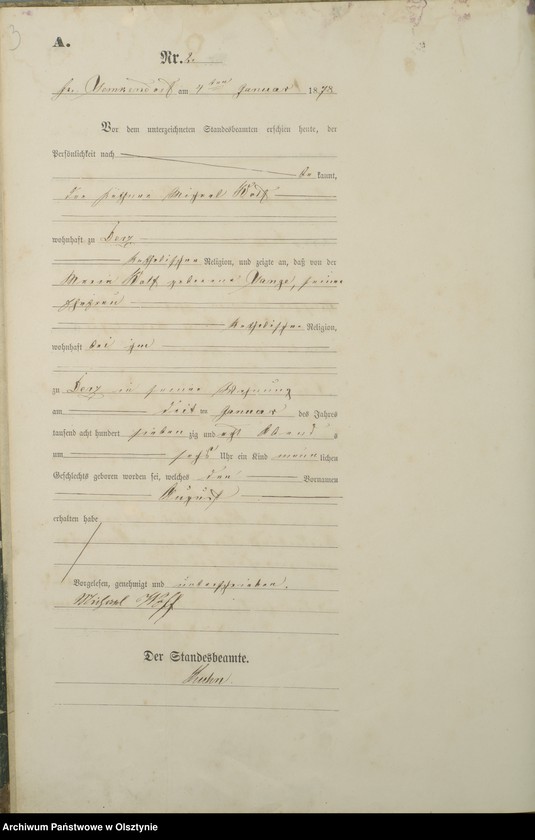 3
A.
Nr. 2.
am 4ten Januar 1878
Vor dem unterzeichneten Standesbeamten erschien heute, der
Persönlichkeit nach
be kannt,
der Michael
wohnhaft zu
katholischer Religion, und zeigte an, daß von der
Maria geborene seiner
Ehefrau
katholischer Religion,
wohnhaft bei ihm
zu in seiner Wohnung
am drei ten Januar des Jahres
tausend acht hundert sieben zig und acht Abends
um sechs Uhr ein Kind männ lichen
Geschlechts geboren worden sei, welches den Vornamen
August
erhalten habe
Vorgelesen, genehmigt und unterschrieben.
Michael
Der Standesbeamte.
Archiwum Państwowe w Olsztynie